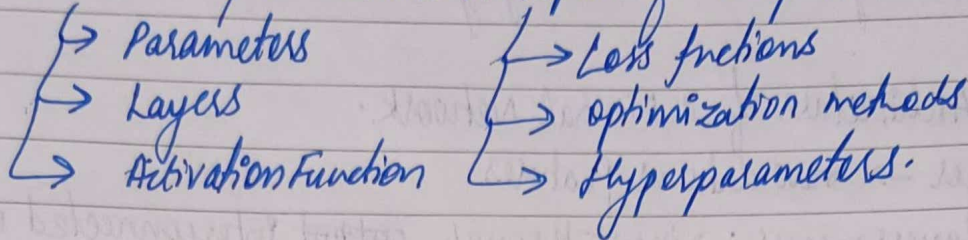 → Parameters
→ Layers
→ Activation Function
→ Loss fnctions
→ optimization methods
→ Hyperparameters.